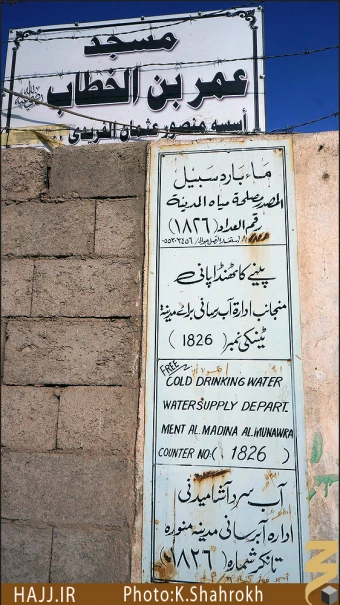 مسجد
عمر بن الخطاب
أسسه منصور عثمان العريدي
ماء بارد سبيل
المصدر مصلحة مياه المدينة
رقم العداد (١٨٢٦)
پینے کا ٹھنڈا پانی
منجانب ادارۃ آب رسانی براے مدینۃ
ٹینکی نمبر (1826)
FREE
COLD DRINKING WATER
WATERSUPPLY DEPART.
MENT AL MADINA AL.MUNAWRA
COUNTER NO-(1826)
آب سرد آشامیدنی
اداره آبرسانی مدینه منوره
تانکر شماره (١٨٢٦)
HAJJ.IR Photo:K.Shahrokh